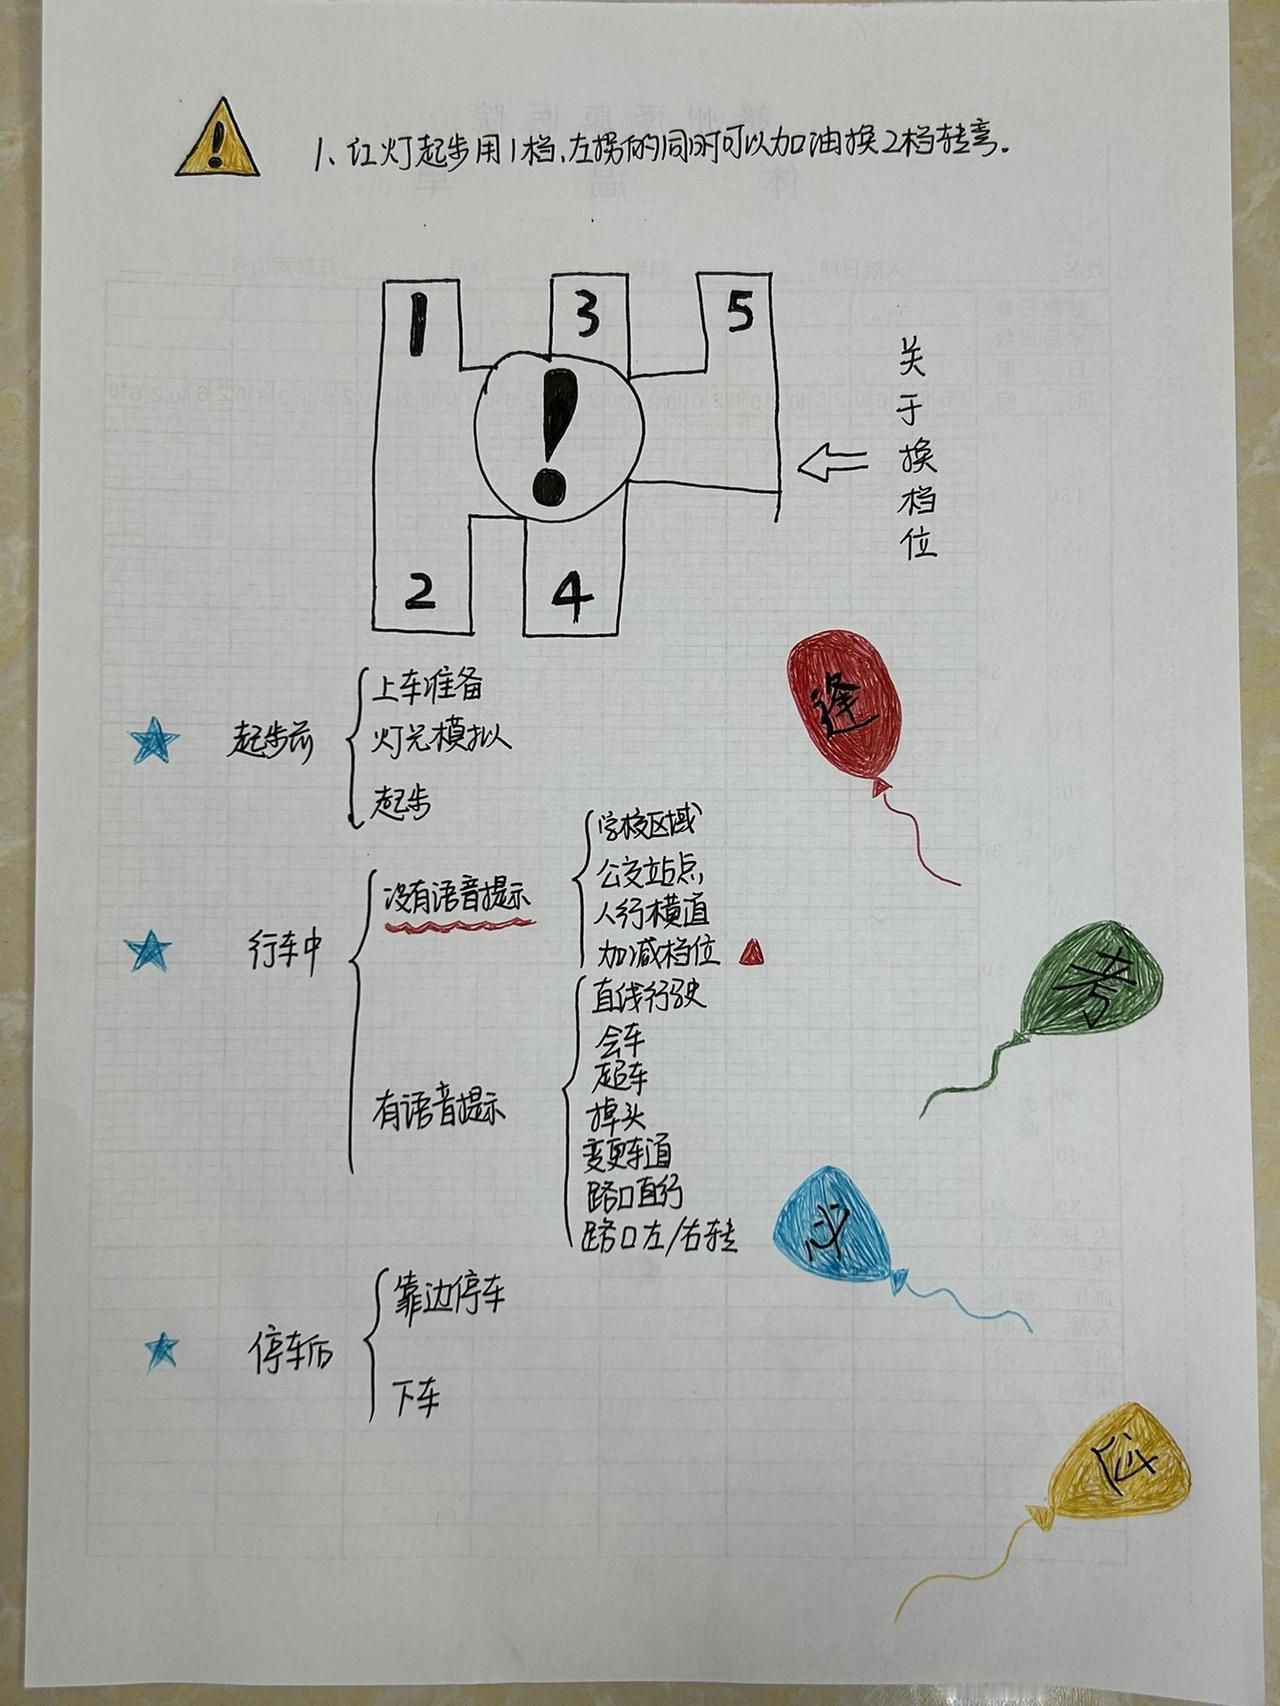 !
1、红灯起步用1档,左拐的同时可以加油换2档转弯.
1 3 5
!
2 4
关于换档位
起步前
上车准备
灯光模拟
起步
行车中
没有语音提示
学校区域
公交站点
人行横道
加减档位
有语音提示
直线行驶
会车
超车
掉头
变更车道
路口直行
路口左/右转
停车后
靠边停车
下车
逢
考
必
过